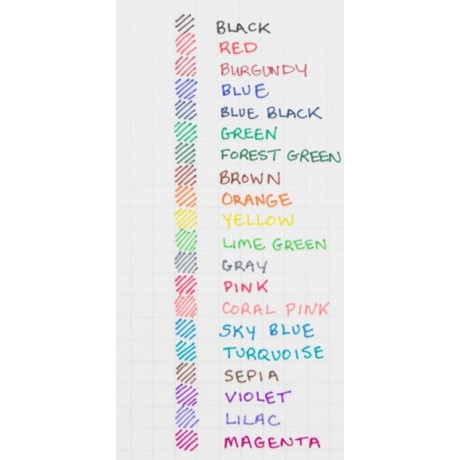 BLACK
RED
BURGUNDY
BLUE
BLUE BLACK
GREEN
FOREST GREEN
BROWN
ORANGE
YELLOW
LIME GREEN
GRAY
PINK
CORAL PINK
SKY BLUE
TURQUOISE
SEPIA
VIOLET
LILAC
MAGENTA